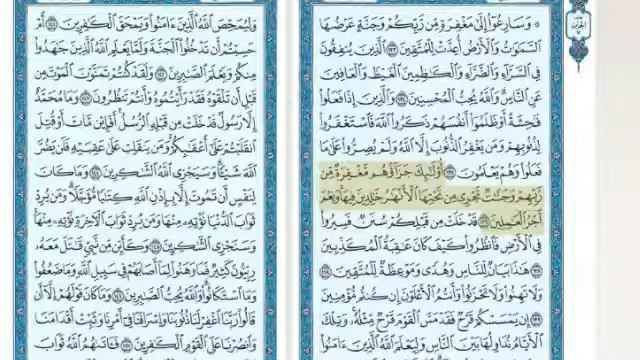 ۞ وَسَارِعُوٓا۟ إِلَىٰ مَغْفِرَةٍ مِّن رَّبِّكُمْ وَجَنَّةٍ عَرْضُهَا
ٱلسَّمَٰوَٰتُ وَٱلْأَرْضُ أُعِدَّتْ لِلْمُتَّقِينَ ١٣٣ ٱلَّذِينَ يُنفِقُونَ
فِى ٱلسَّرَّآءِ وَٱلضَّرَّآءِ وَٱلْكَٰظِمِينَ ٱلْغَيْظَ وَٱلْعَافِينَ
عَنِ ٱلنَّاسِ وَٱللَّهُ يُحِبُّ ٱلْمُحْسِنِينَ ١٣٤ وَٱلَّذِينَ إِذَا فَعَلُوا۟
فَٰحِشَةً أَوْ ظَلَمُوٓا۟ أَنفُسَهُمْ ذَكَرُوا۟ ٱللَّهَ فَٱسْتَغْفَرُوا۟
لِذُنُوبِهِمْ وَمَن يَغْفِرُ ٱلذُّنُوبَ إِلَّا ٱللَّهُ وَلَمْ يُصِرُّوا۟ عَلَىٰ مَا
فَعَلُوا۟ وَهُمْ يَعْلَمُونَ ١٣٥ أُو۟لَٰٓئِكَ جَزَآؤُهُم مَّغْفِرَةٌ مِّن
رَّبِّهِمْ وَجَنَّٰتٌ تَجْرِى مِن تَحْتِهَا ٱلْأَنْهَٰرُ خَٰلِدِينَ فِيهَا وَنِعْمَ
أَجْرُ ٱلْعَٰمِلِينَ ١٣٦ قَدْ خَلَتْ مِن قَبْلِكُمْ سُنَنٌ فَسِيرُوا۟
فِى ٱلْأَرْضِ فَٱنظُرُوا۟ كَيْفَ كَانَ عَٰقِبَةُ ٱلْمُكَذِّبِينَ
١٣٧ هَٰذَا بَيَانٌ لِّلنَّاسِ وَهُدًى وَمَوْعِظَةٌ لِّلْمُتَّقِينَ ١٣٨
وَلَا تَهِنُوا۟ وَلَا تَحْزَنُوا۟ وَأَنتُمُ ٱلْأَعْلَوْنَ إِن كُنتُم مُّؤْمِنِينَ
١٣٩ إِن يَمْسَسْكُمْ قَرْحٌ فَقَدْ مَسَّ ٱلْقَوْمَ قَرْحٌ مِّثْلُهُۥ وَتِلْكَ
ٱلْأَيَّامُ نُدَاوِلُهَا بَيْنَ ٱلنَّاسِ وَلِيَعْلَمَ ٱللَّهُ ٱلَّذِينَ ءَامَنُوا۟
وَلِيُمَحِّصَ ٱللَّهُ ٱلَّذِينَ ءَامَنُوا۟ وَيَمْحَقَ ٱلْكَٰفِرِينَ ١٤١ أَمْ
حَسِبْتُمْ أَن تَدْخُلُوا۟ ٱلْجَنَّةَ وَلَمَّا يَعْلَمِ ٱللَّهُ ٱلَّذِينَ جَٰهَدُوا۟
مِنكُمْ وَيَعْلَمَ ٱلصَّٰبِرِينَ ١٤٢ وَلَقَدْ كُنتُمْ تَمَنَّوْنَ ٱلْمَوْتَ مِن
قَبْلِ أَن تَلْقَوْهُ فَقَدْ رَأَيْتُمُوهُ وَأَنتُمْ تَنظُرُونَ ١٤٣ وَمَا مُحَمَّدٌ
إِلَّا رَسُولٌ قَدْ خَلَتْ مِن قَبْلِهِ ٱلرُّسُلُ أَفَإِي۟ن مَّاتَ أَوْ قُتِلَ
ٱنقَلَبْتُمْ عَلَىٰٓ أَعْقَٰبِكُمْ وَمَن يَنقَلِبْ عَلَىٰ عَقِبَيْهِ فَلَن يَضُرَّ
ٱللَّهَ شَيْـًٔا وَسَيَجْزِى ٱللَّهُ ٱلشَّٰكِرِينَ ١٤٤ وَمَا كَانَ
لِنَفْسٍ أَن تَمُوتَ إِلَّا بِإِذْنِ ٱللَّهِ كِتَٰبًا مُّؤَجَّلًا وَمَن يُرِدْ
ثَوَابَ ٱلدُّنْيَا نُؤْتِهِۦ مِنْهَا وَمَن يُرِدْ ثَوَابَ ٱلْءَاخِرَةِ نُؤْتِهِۦ مِنْهَا
وَسَنَجْزِى ٱلشَّٰكِرِينَ ١٤٥ وَكَأَيِّن مِّن نَّبِىٍّ قَٰتَلَ مَعَهُۥ
رِبِّيُّونَ كَثِيرٌ فَمَا وَهَنُوا۟ لِمَآ أَصَابَهُمْ فِى سَبِيلِ ٱللَّهِ وَمَا ضَعُفُوا۟
وَمَا ٱسْتَكَانُوا۟ وَٱللَّهُ يُحِبُّ ٱلصَّٰبِرِينَ ١٤٦ وَمَا كَانَ قَوْلَهُمْ إِلَّآ أَن
قَالُوا۟ رَبَّنَا ٱغْفِرْ لَنَا ذُنُوبَنَا وَإِسْرَافَنَا فِىٓ أَمْرِنَا وَثَبِّتْ أَقْدَامَنَا
وَٱنصُرْنَا عَلَى ٱلْقَوْمِ ٱلْكَٰفِرِينَ ١٤٧ فَـَٔاتَىٰهُمُ ٱللَّهُ ثَوَابَ